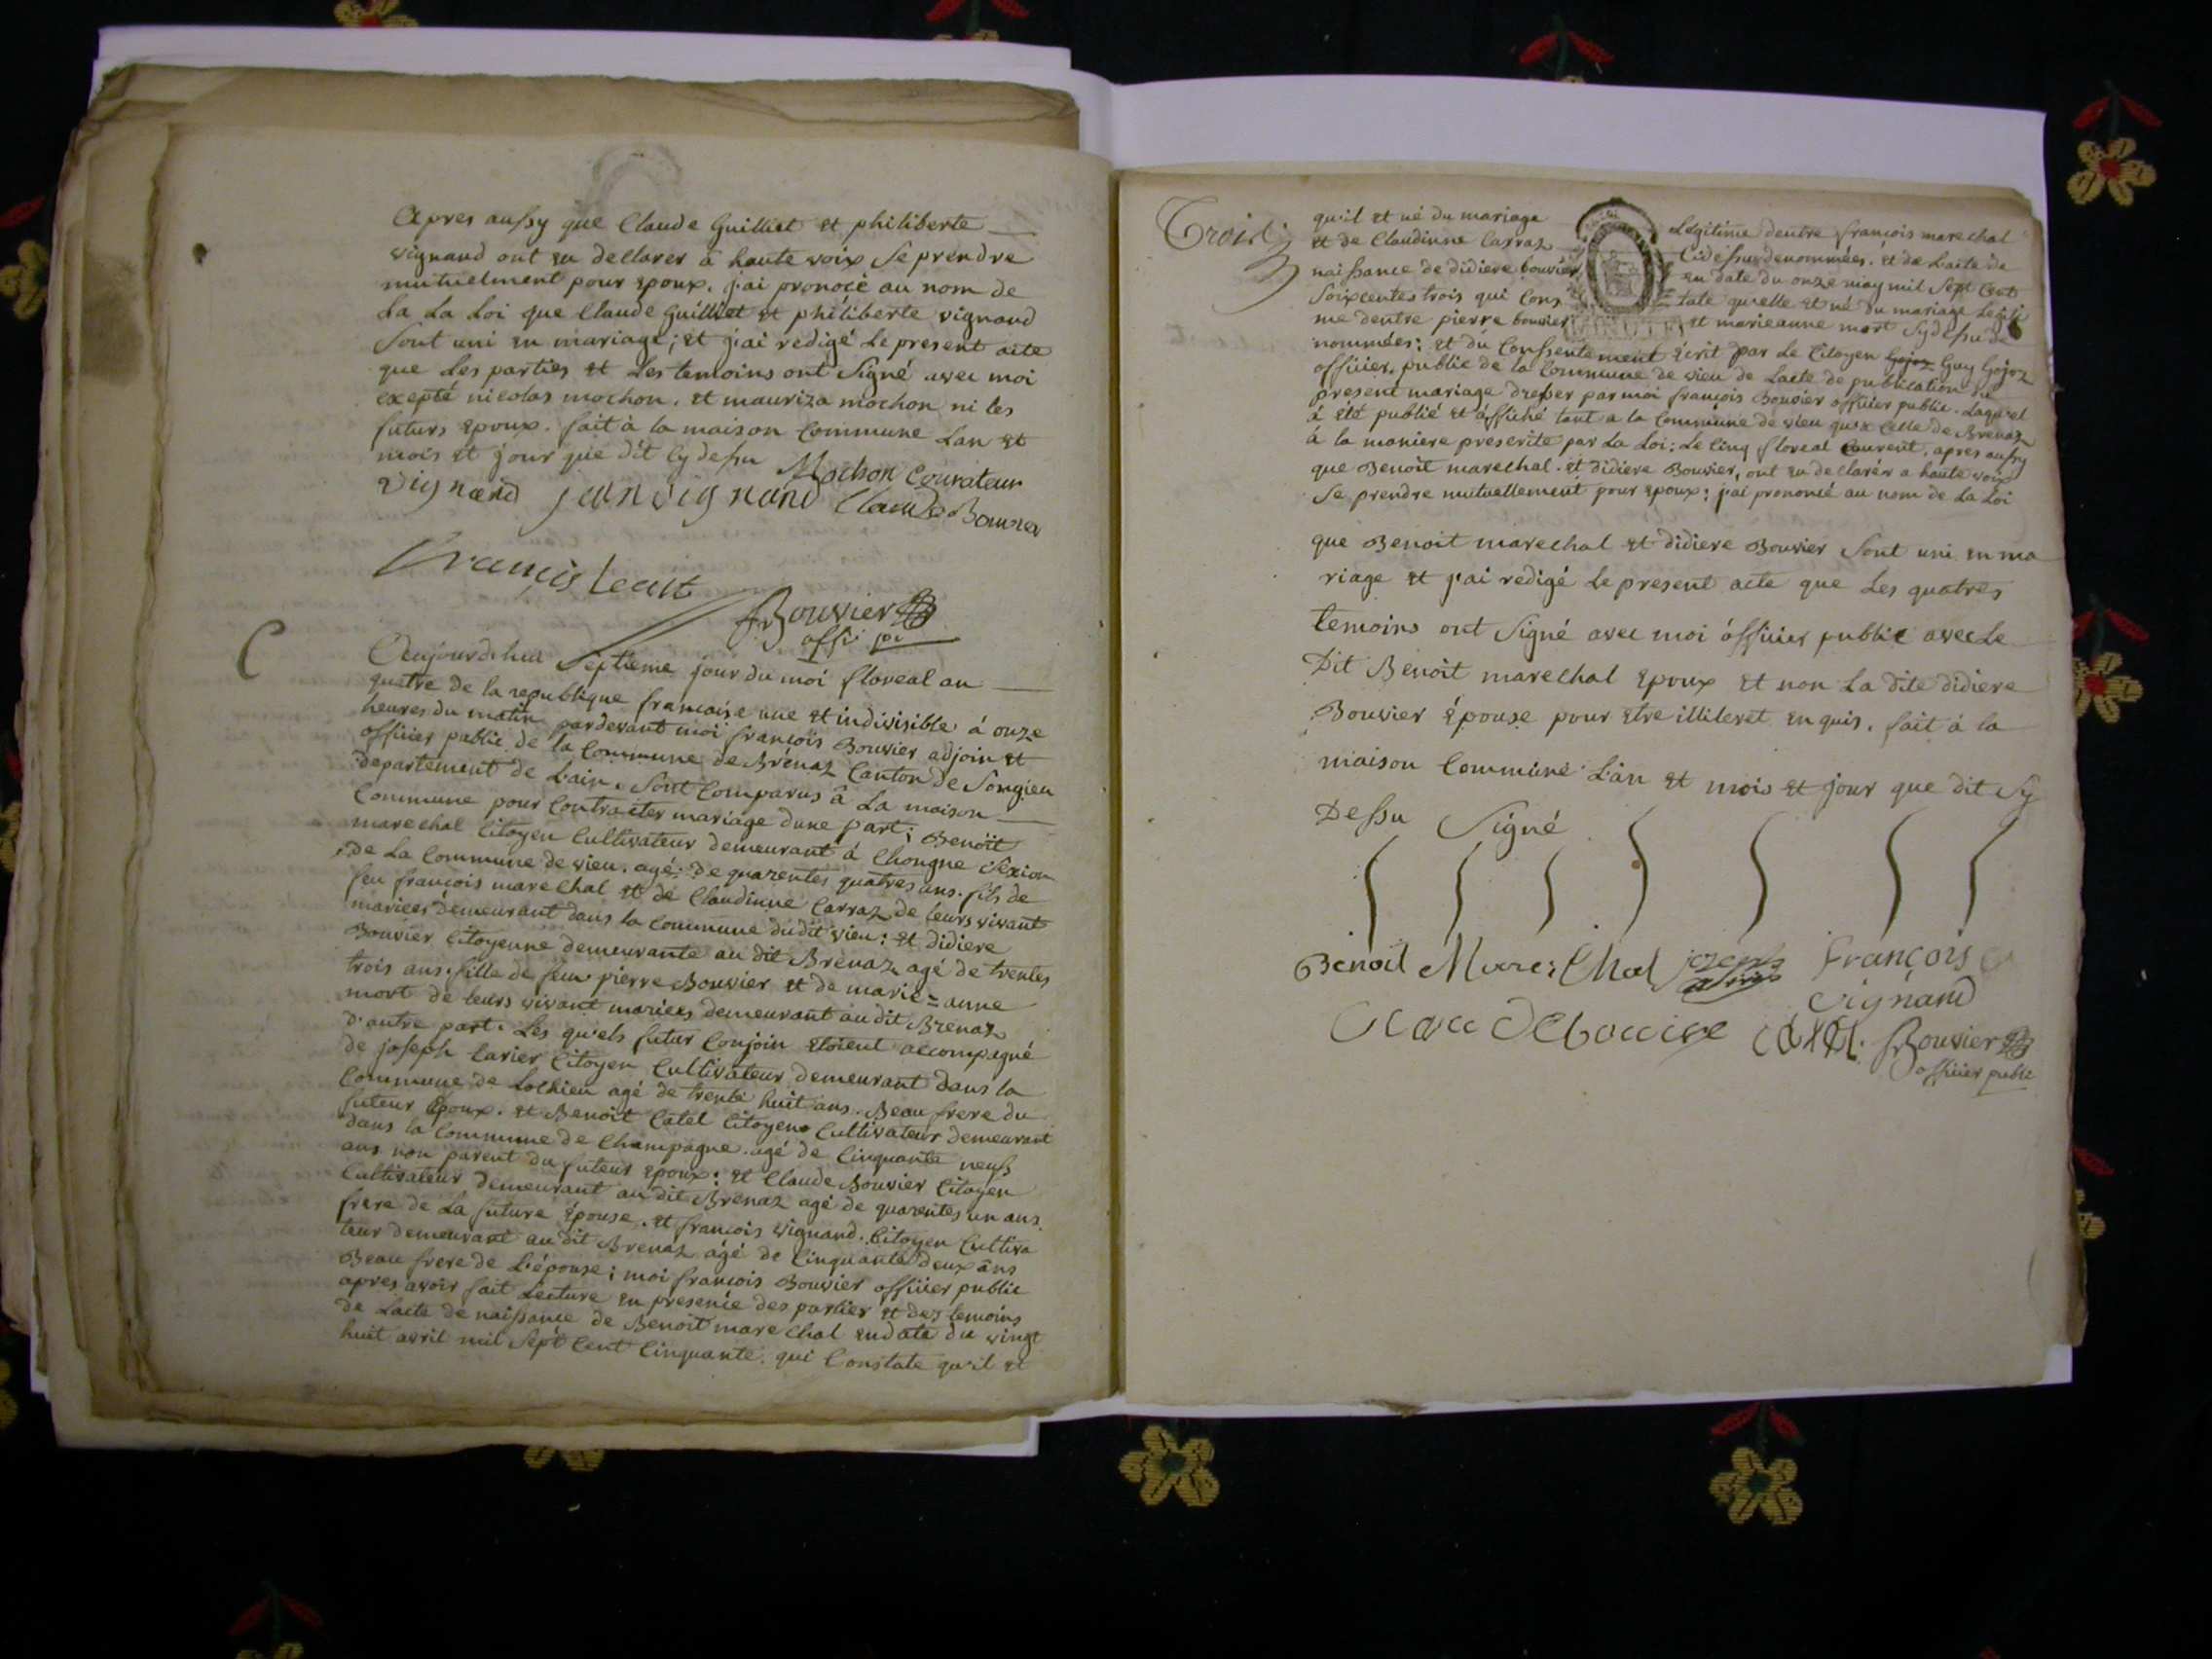 Apres aussy que Claude Guilliet et philiberte
vignand ont eu declarer à haute voix se prendre
mutuelment pour epoux. j'ai pronocé au nom de
La La Loi que Claude Guilliet et philiberte vignand
Sont uni en mariage; et j'ai redigé Le present acte
que Les parties et Les temoins ont Signé avec moi
excepté nicolas mochon. et mauriza mochon ni les
futurs epoux. fait à la maison Commune Lan et
mois et jour que dit Cy dessu Mochon Courateur
vignand jean vignand Claude Bouvier
François
Bouvier
offi pu
C
Aujourd'hui Septieme jour du moi floreal an
quatre de la republique francaise une et indivisible á onze
heures du matin pardevant moi françois Bouvier adjoin et
officier public de la Commune de Brénaz Canton de Songieu
departement de L'ain. Sont Comparus à La maison
Commune pour Contracter mariage dune part; Benoit
marechal Citoyen Cultivateur demeurant à Chongne Sexion
de La Commune de vieu. agé; de quarentes quatres ans. fils de
feu françois marechal et de Claudinne Carraz de leurs vivant
mariees demeurant dans la Commune dudit vieu: et didiere
Bouvier Citoyenne demeurante au dit Brénaz agé de trentes
trois ans. fille de feu pierre Bouvier et de marie=anne
mort de leurs vivant mariees demeurant audit Brenaz
d'autre part. Les qu'els futur Conjoin etoient accompagné
de joseph Carier Citoyen Cultivateur demeurant dans la
Commune de Lochieu agé de trente huit ans. Beau frere du
futeur Epoux. et Benoit Catel Citoyen Cultivateur demeurant
dans la Commune de Champagne. agé de Cinquante neuf
ans non parent du futeur epoux: et Claude Bouvier Citoyen
Cultivateur demeurant au dit Brenaz agé de quarentes un ans.
frere de La future épouse. et françois vignand. Citoyen Cultiva
teur demeurant au dit Brenaz agé de Cinquante deux ans
Beau frere de L'épouse; moi françois Bouvier officier public
apres avoir fait Lecture en presence des partier et des temoins
de Lacte de naissance de Benoit marechal en date du vingt
huit avril mil Sept Cent Cinquante. qui Constate qu'il et
Trois
qu'il et né du mariage Légitime dentre françois marechal
et de Claudinne Carraz Cidessu denommées. et de Lacte de
naissance de didiere bouvier en date du onze may mil Sept Cent
Soixcentes trois qui Cons tate qu'elle et né du mariage Legiti
me dentre pierre bouvier et marieanne mort Sydessu de
nommées: et du Consentement écrit par Le Citoyen Gojoz Guy Gojoz
officier public de la Commune de vieu de Lacte de publication du
present mariage dresser par moi françois Bouvier officier public. Laquel
à été publié et affiché tant a la Commune de vieu qu'a Celle de Brenaz
à la maniere prescrite par La Loi: Le Cinq floreal Courent. apres aussy
que Benoit marechal. et didiere Bouvier, ont eu declarér a haute voix
Se prendre mutuellement pour epoux; j'ai prononcé au nom de La Loi
que Benoit marechal et didiere Bouvier Sont uni en ma
riage et j'ai redigé Le present acte que Les quatres
temoins ont Signé avec moi officier public avec Le
Dit Benoit marechal epoux et non La dite didiere
Bouvier épouse pour etre illiteret enquis. fait à la
maison Commune L'an et mois et jour que dit Sy
Dessu Signé
Benoit Marechal joseph françois
vignand
Bouvier
officier public